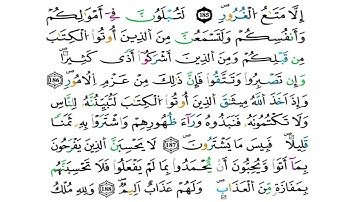 إِلَّا مَتَـٰعُ الْغُرُورِ ١٨٥ لَتُبْلَوُنَّ فِىٓ أَمْوَٰلِكُمْ
وَأَنفُسِكُمْ وَلَتَسْمَعُنَّ مِنَ الَّذِينَ أُوتُوا۟ الْكِتَـٰبَ
مِن قَبْلِكُمْ وَمِنَ الَّذِينَ أَشْرَكُوٓا۟ أَذًى كَثِيرًا ۚ
وَإِن تَصْبِرُوا۟ وَتَتَّقُوا۟ فَإِنَّ ذَٰلِكَ مِنْ عَزْمِ الْأُمُورِ ١٨٦
وَإِذْ أَخَذَ اللَّهُ مِيثَـٰقَ الَّذِينَ أُوتُوا۟ الْكِتَـٰبَ لَتُبَيِّنُنَّهُۥ لِلنَّاسِ
وَلَا تَكْتُمُونَهُۥ فَنَبَذُوهُ وَرَآءَ ظُهُورِهِمْ وَاشْتَرَوْا۟ بِهِۦ ثَمَنًا
قَلِيلًا ۖ فَبِئْسَ مَا يَشْتَرُونَ ١٨٧ لَا تَحْسَبَنَّ الَّذِينَ يَفْرَحُونَ
بِمَآ أَتَوا۟ وَّيُحِبُّونَ أَن يُحْمَدُوا۟ بِمَا لَمْ يَفْعَلُوا۟ فَلَا تَحْسَبَنَّهُم
بِمَفَازَةٍ مِّنَ الْعَذَابِ ۖ وَلَهُمْ عَذَابٌ أَلِيمٌ ١٨٨ وَلِلَّهِ مُلْكُ